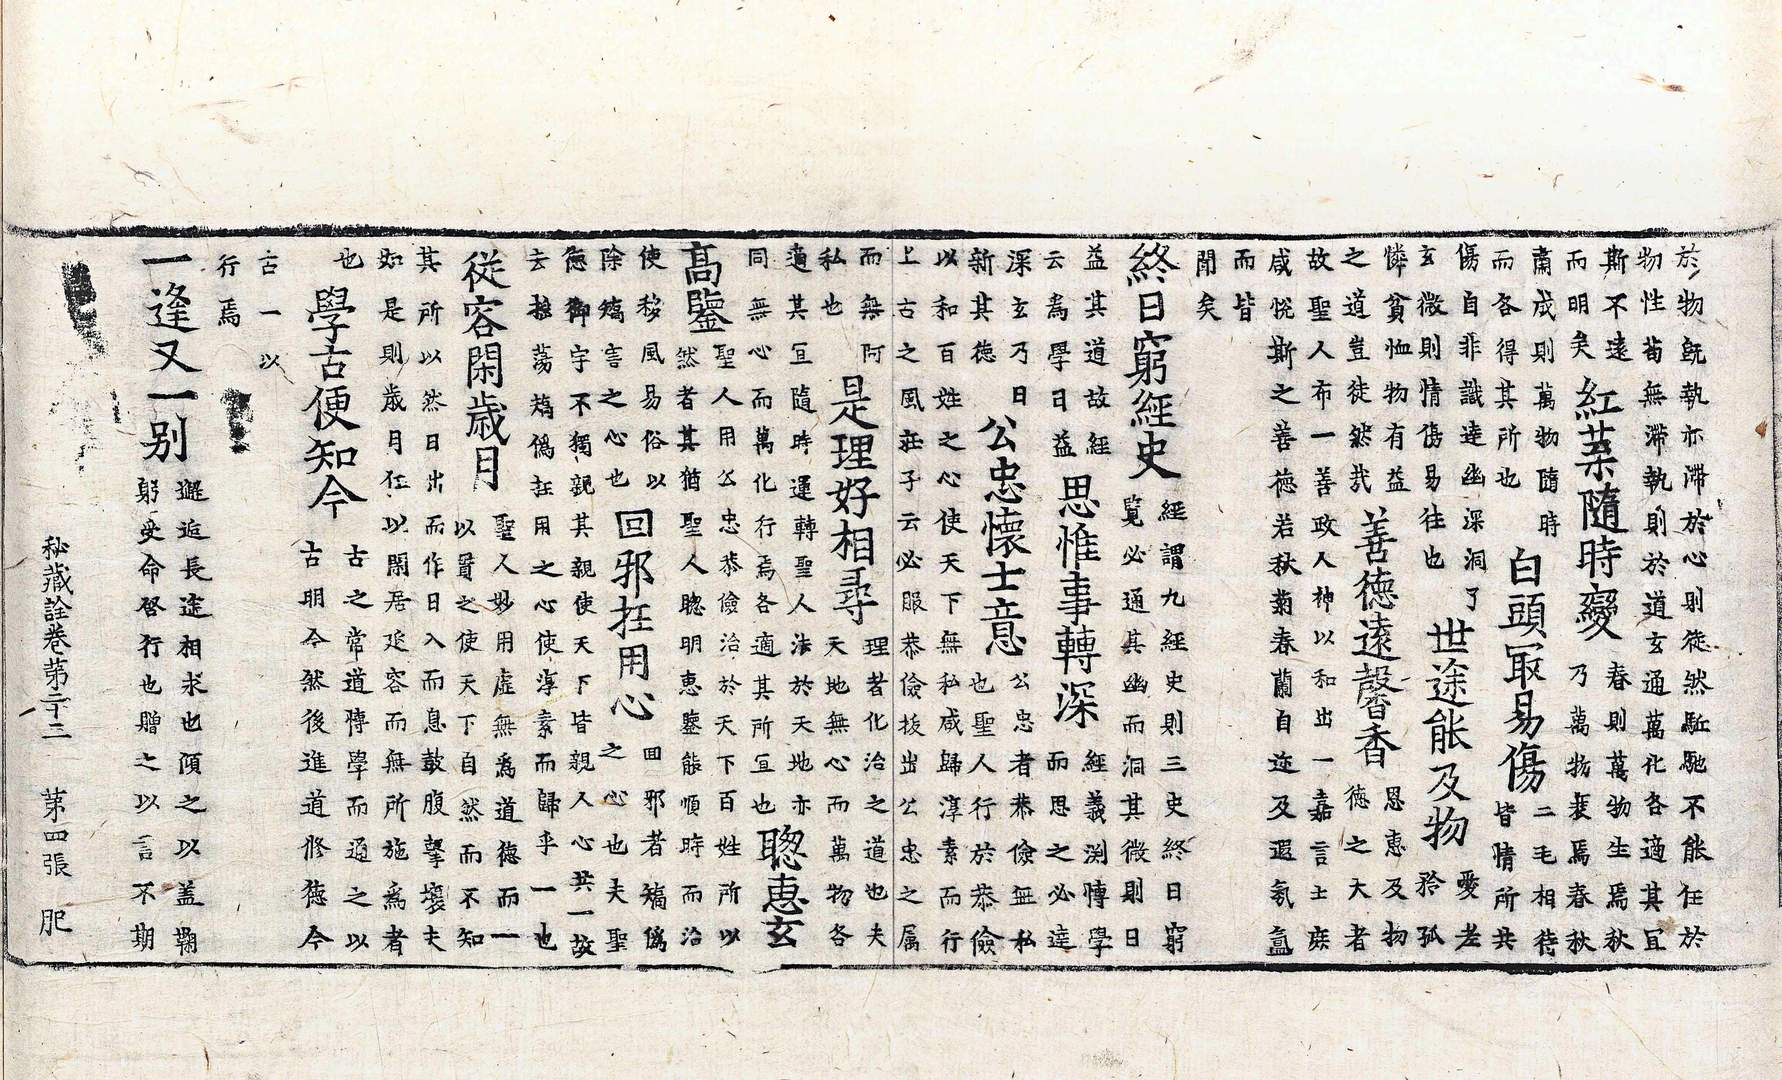 於物旣執亦滯於心則徒然馳馳不能任於
物性苟無滯執則於道玄通萬化各適其冝
斯不遠
而明矣
紅蘂隨時變
春則萬物生焉秋
乃萬物衰焉春秋
肅成則萬物隨時
而各得其所也
白頭冣易傷
二毛相待
皆情所共
傷自非識達幽深洞了
玄微則情傷易往也
世途能及物
愛老
矜孤
憐貧恤物有益
之道豈徒然哉
善德遠馨香
恩惠及物
德之大者
故聖人布一善政人神以和出一嘉言士庶
咸悅斯之善德若秋菊春蘭自迩及遐氛氳
而皆
聞矣
終日窮經史
經謂九經史則三史終日窮
覽必通其幽而洞其微則日
益其道故經
云爲學日益
思惟事轉深
經義渕愽學
而思之必達
深玄乃日
新其德
公忠懷士意
公忠者恭儉無私
也聖人行於恭儉
以和百姓之心使天下無私咸歸淳素而行
上古之風莊子云必服恭儉拔出公忠之属
而無阿
私也
是理好相尋
理者化治之道也夫
天地無心而萬物各
適其冝隨時運轉聖人法於天地亦
同無心而萬化行焉各適其所冝也
聦惠玄
高鑒
聖人用公忠恭儉治於天下百姓所以
然者其猶聖人聦明惠鑒能順時而治
使移風易俗以
除矯言之心也
回邪抂用心
回邪者矯僞
之心也夫聖
德御宇不獨親其親使天下皆親人心共一故
去抂蕩矯僞抂用之心使淳素而歸乎一也
從容閑歲月
聖人妙用虛無爲道德而一
以貫之使天下自然而不知
其所以然日出而作日入而息鼓腹擊壤夫
如是則歲月任以閑居延容而無所施爲者
也
學古便知今
古之常道愽學而通之以
古明今然後進道修德今
古一以
行焉
一逢又一别
邂逅長途相求也傾之以盖鞠
躬受命啓行也贈之以言不期
秘藏詮卷第二十三 第四張 肥